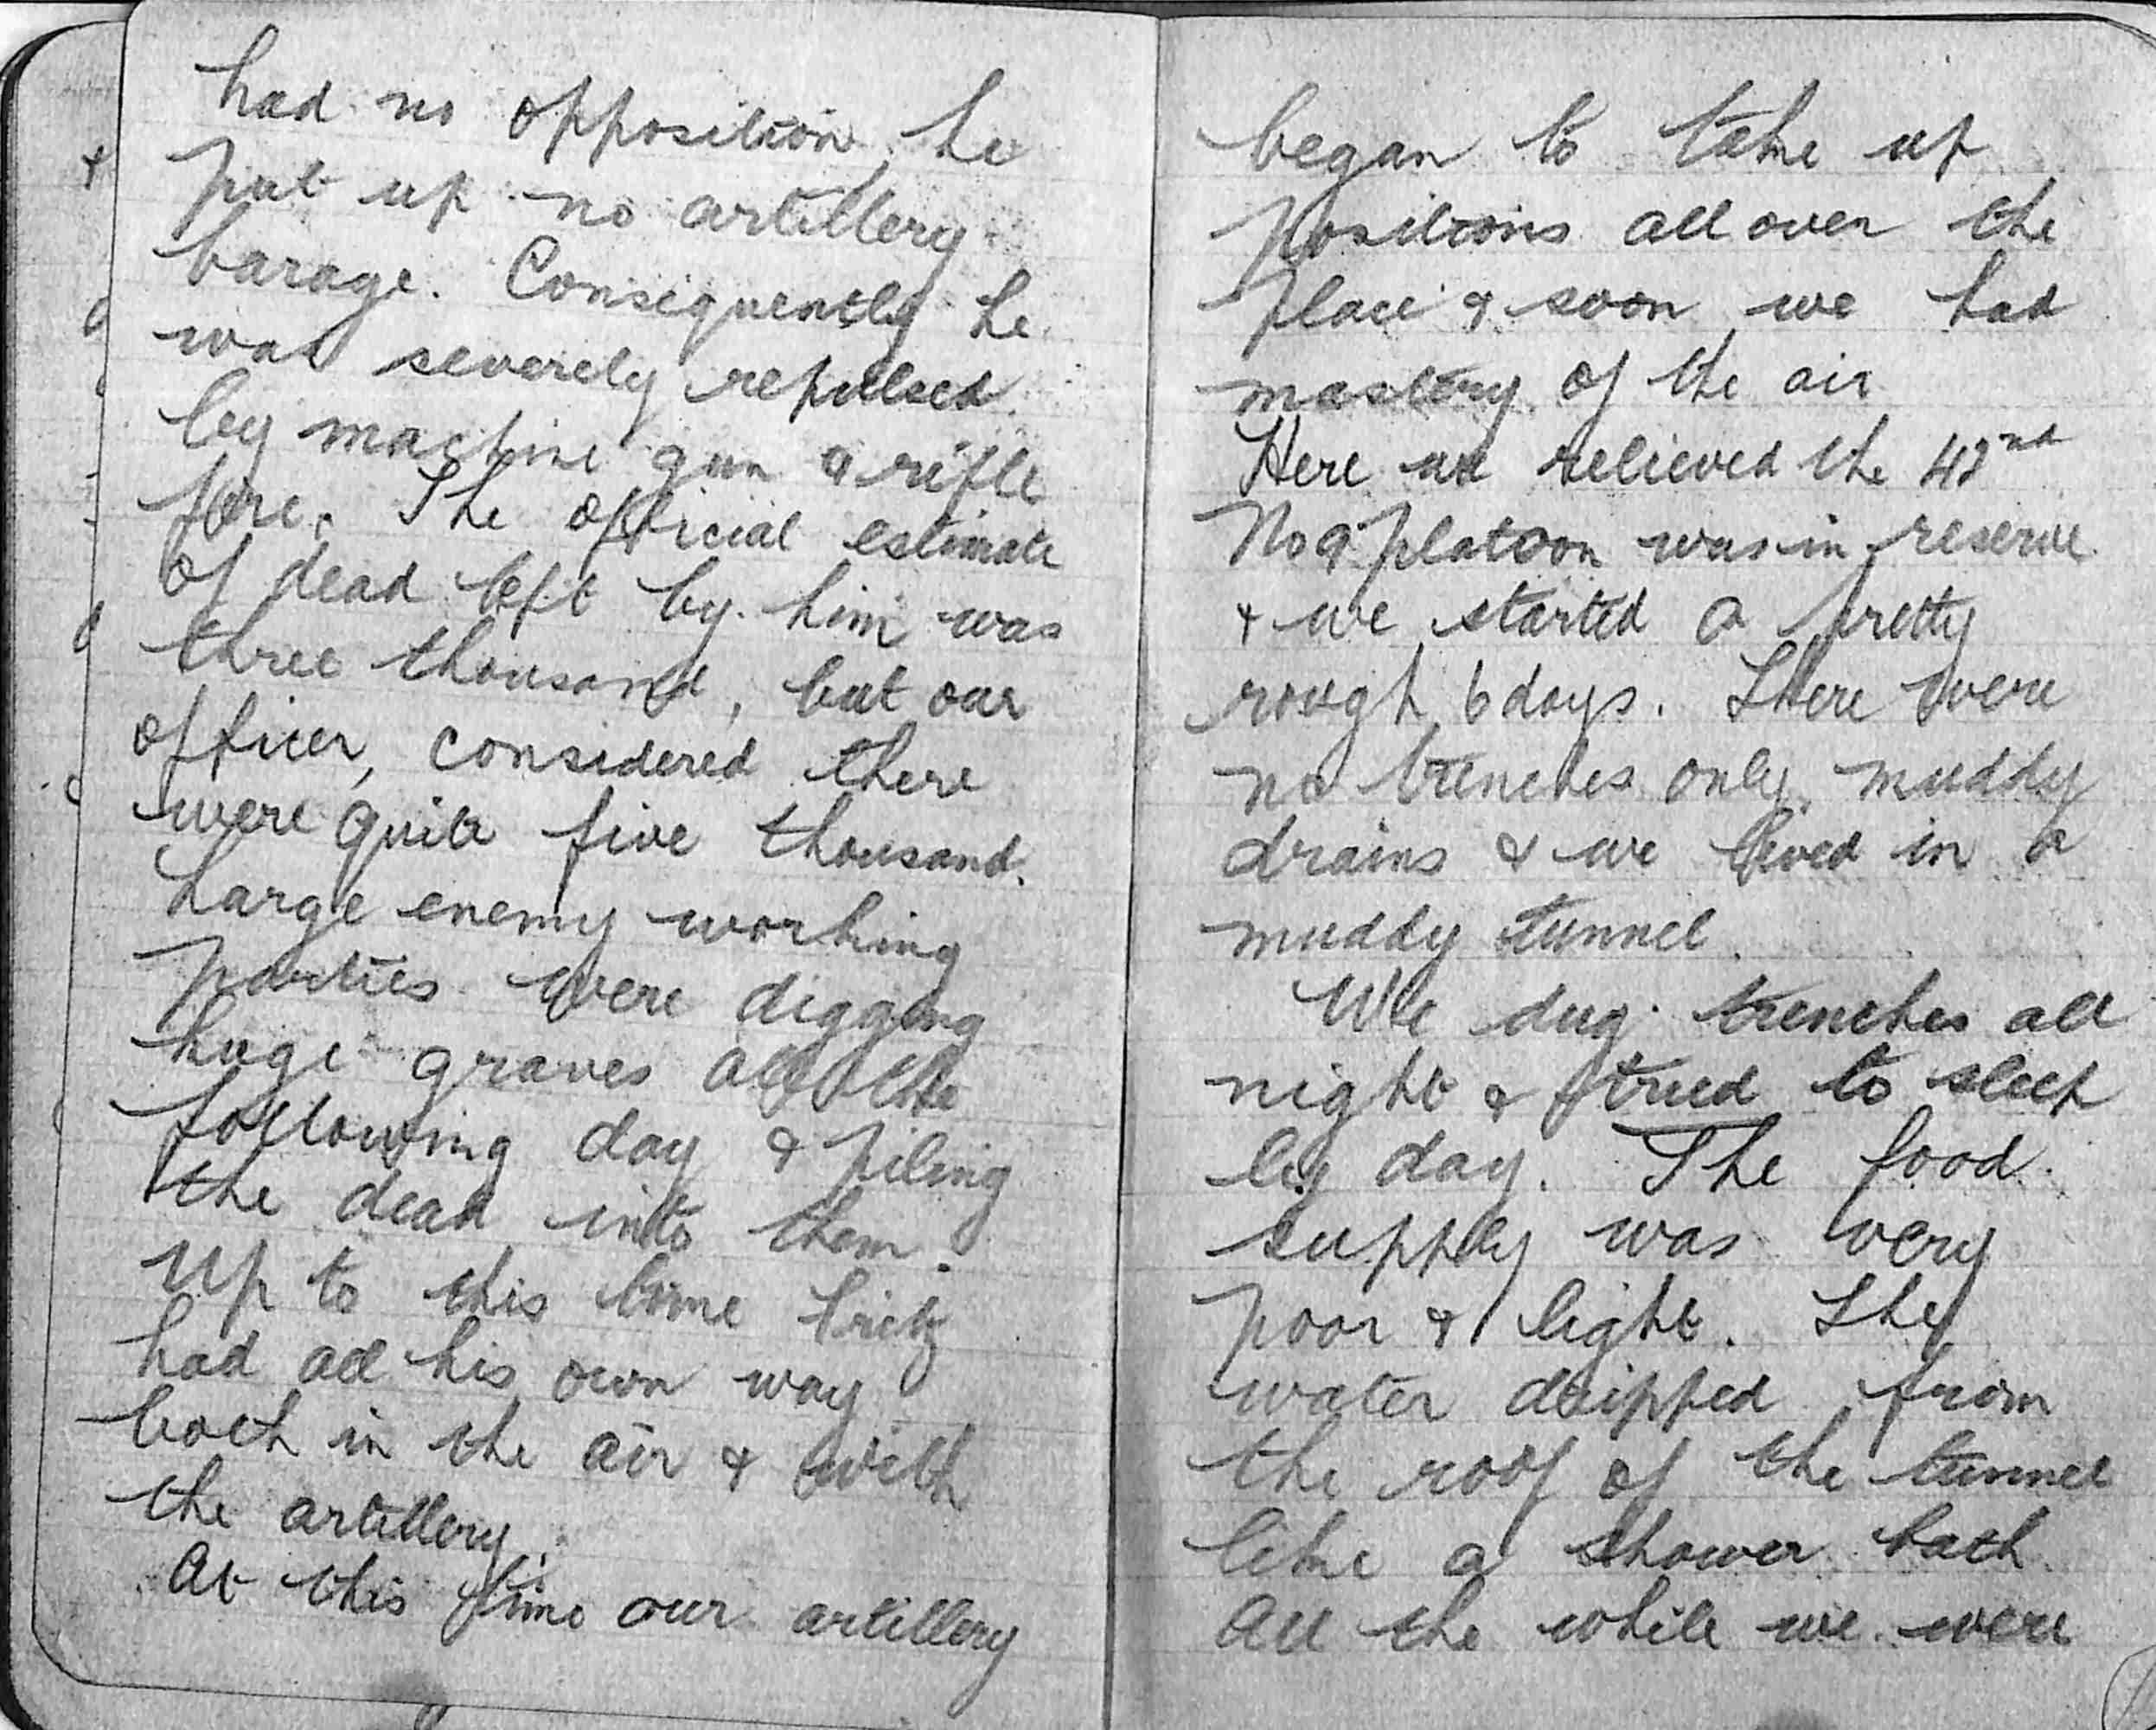 had no opposition, he
put up no artillery
barage. Consequently he
was severely repulsed
by machine gun & rifle
fire. The official estimate
of dead left by him was
three thousand, but our
officer, considered there
were quite five thousand.
Large enemy working
parties were digging
huge graves all the
following day & piling
the dead into them.
Up to this time Fritz
had all his own way
both in the air & with
the artillery.
At this time our artillery
began to take up
positions all over the
place & soon we had
mastery of the air
Here we relieved the 42nd
No 9 platoon was in reserve
& we started a pretty
rough 6 days. There were
no trenches only muddy
drains & we lived in a
muddy tunnel.
We dug trenches all
night & tried to sleep
by day. The food
supply was very
poor & light. The
water dripped from
the roof of the tunnel
like a shower bath
All the while we were